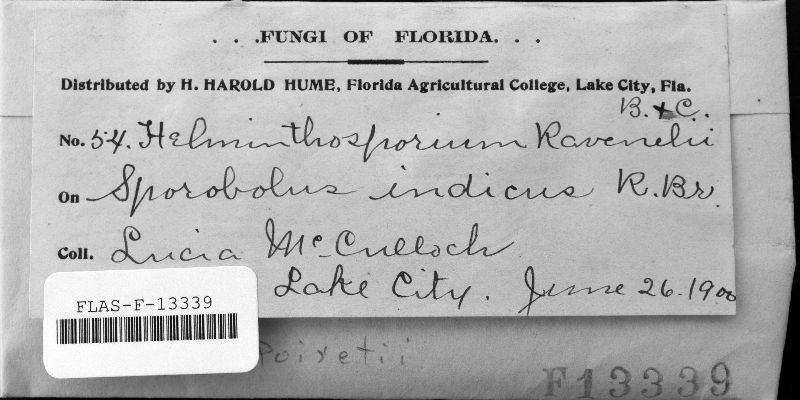 . . .FUNGI OF FLORIDA. . .
Distributed by H. HAROLD HUME, Florida Agricultural College, Lake City, Fla.
B. & C.
No. 54. Helminthosporium Ravenelii
On Sporobolus indicus R.Br.
Coll. Lucia McCulloch
Lake City. June 26-1900
FLAS-F-13339
Poiretii
F13339